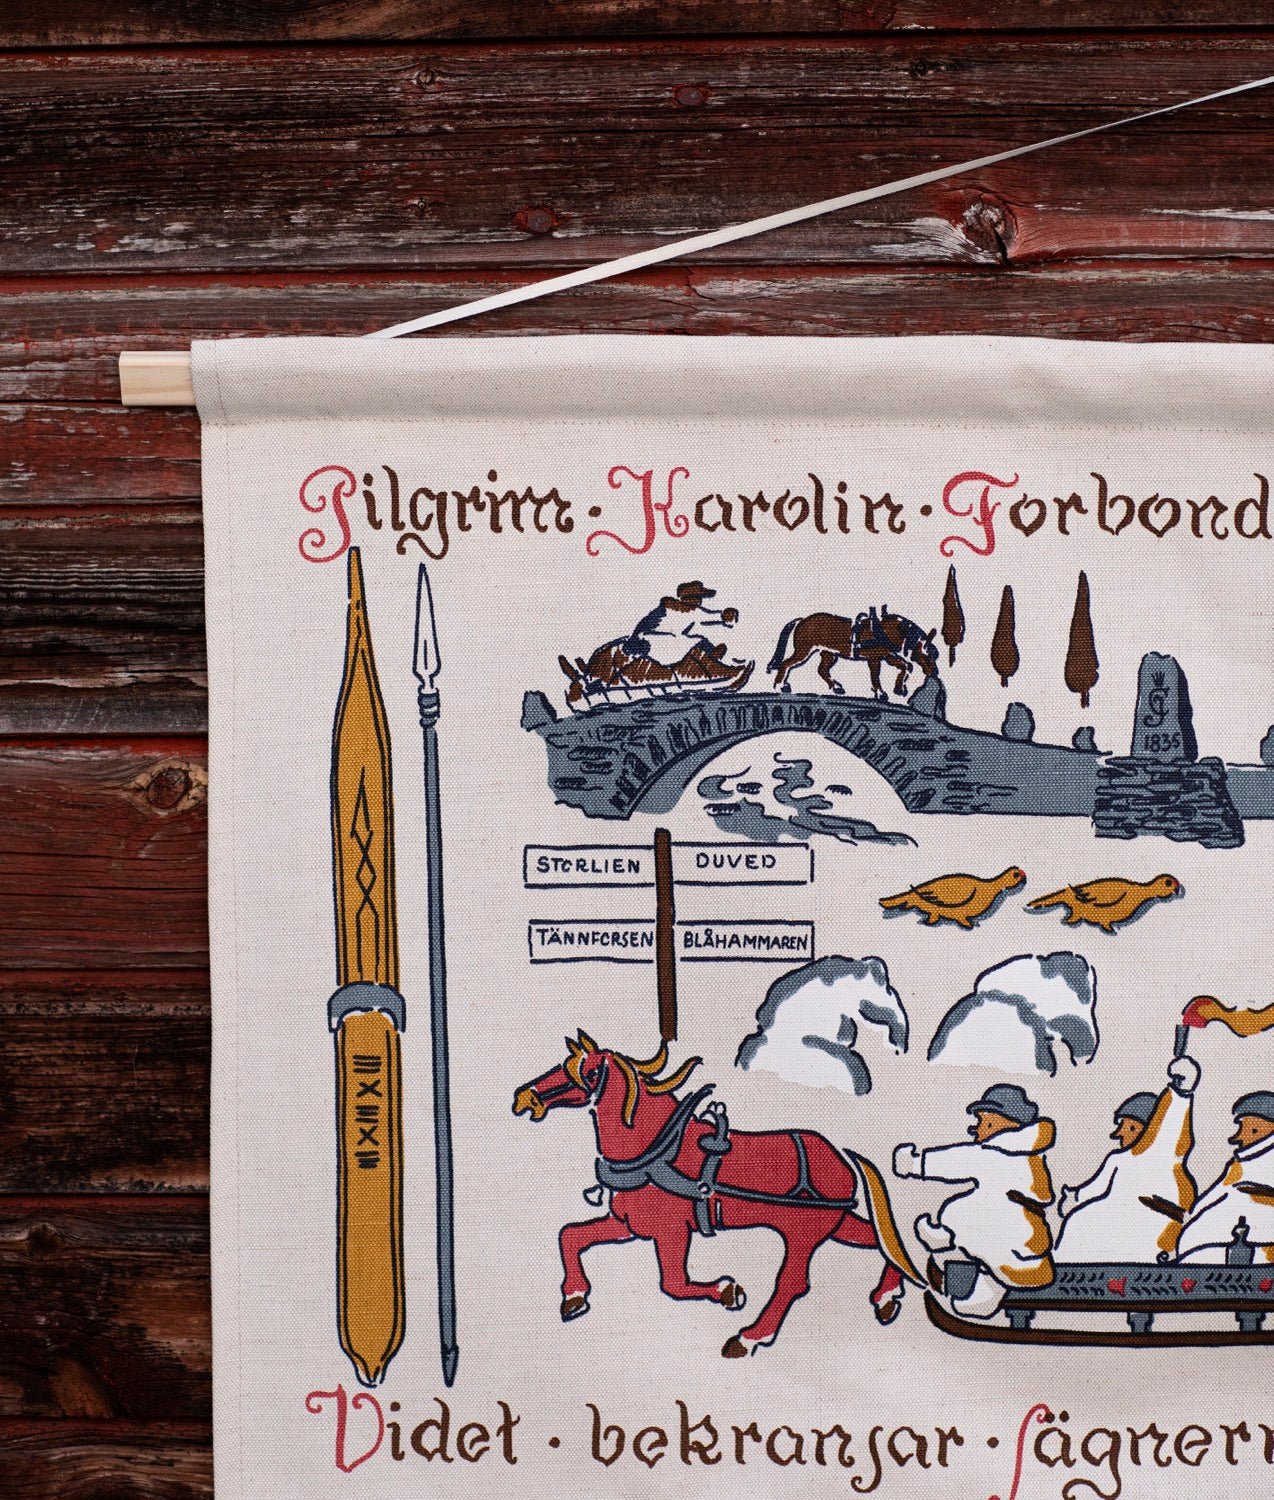 Pilgrim · Karolin · Forbond
1835
STORLIEN DUVED
TÄNNFORSEN BLÅHAMMAREN
III X III X III
Videt · bekransar · sägnern